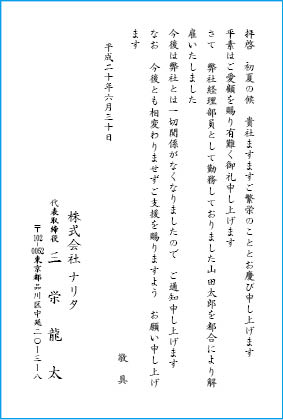 拝啓　初夏の候　貴社ますますご繁栄のこととお慶び申し上げます
平素はご愛顧を賜り有難く御礼申し上げます
さて　弊社経理部員として勤務しておりました山田太郎を都合により解
雇いたしました
今後は弊社とは一切関係がなくなりましたので　ご通知申し上げます
なお　今後とも相変わりませずご支援を賜りますよう　お願い申し上げ
ます
敬具
平成二十年六月三十日
株式会社 ナリタ
代表取締役　三栄龍太
〒102-0052東京都品川区中延二〇ー三ー八